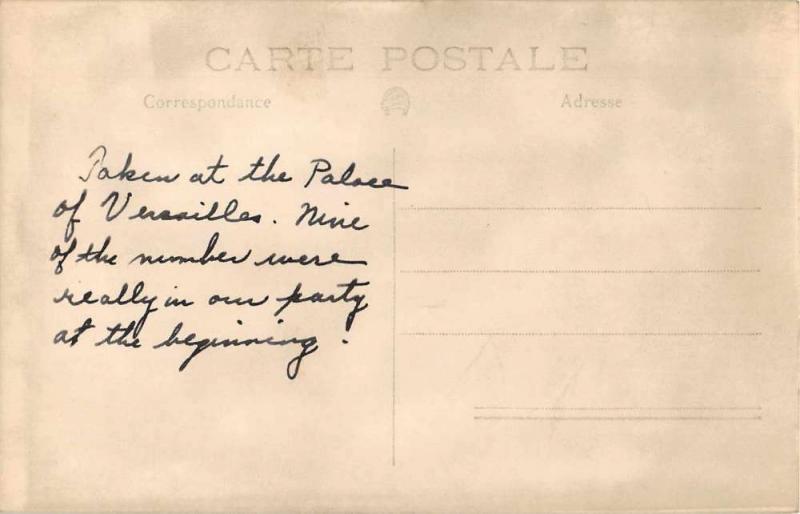 CARTE POSTALE
Correspondance
Adresse
Taken at the Palace
of Versailles. Nine
of the number were
really in our party
at the beginning.